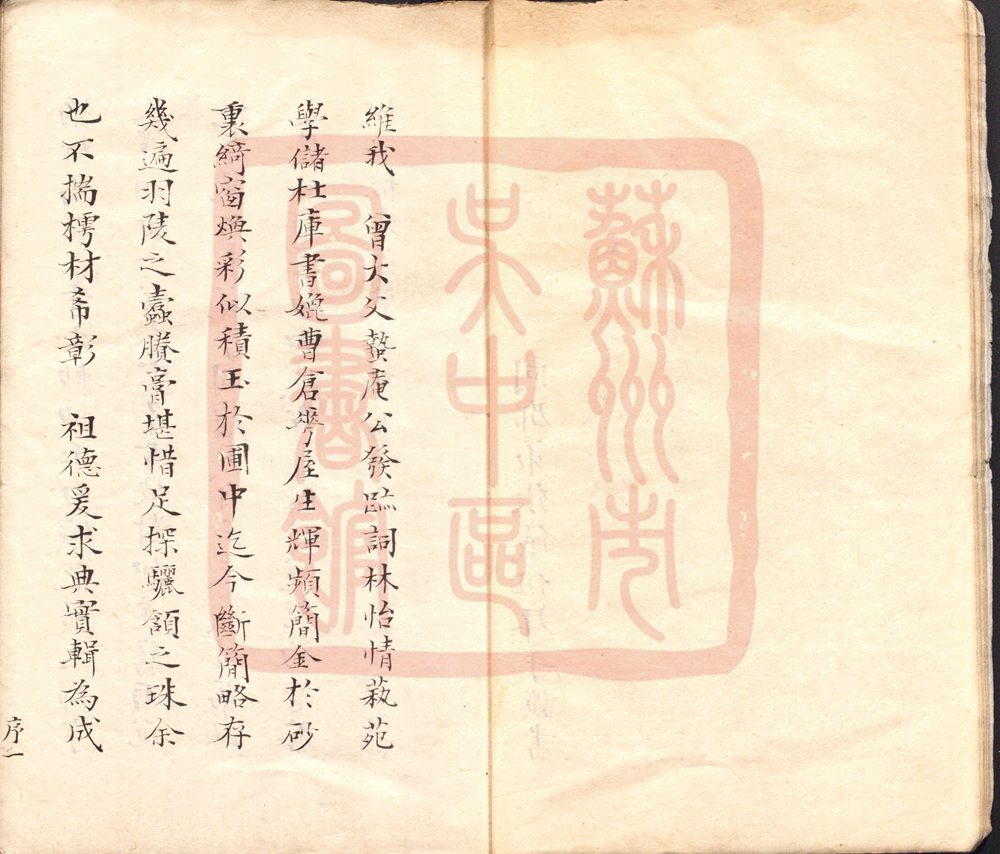 蘇州市
吳中區
圖書館
維我 曾大父蟄庵公發臨詞林怡情蓺苑
學儲杜庫書媲曹倉芳屋生輝頻簡金於砂
裏綺窗煥彩似積玉於圃中迄今斷簡略存
幾遍羽陵之蠹賸膏堪惜足探驪頷之珠余
也不揣樗材希彰 祖德爰求典實輯為成
序一